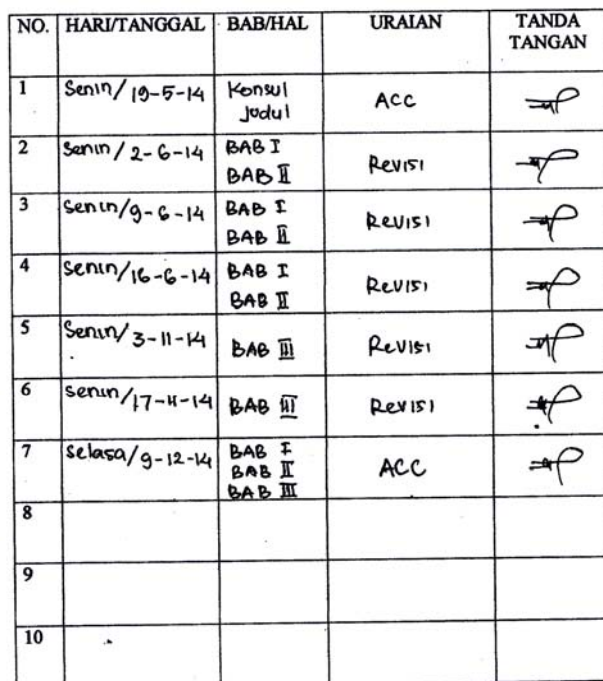 NO. HARI/TANGGAL BAB/HAL URAIAN TANDA TANGAN
1 Senin/ 19-5-14 Konsul Judul ACC
2 Senin/ 2-6-14 BAB I BAB II Revisi
3 Senin/9-6-14 BAB I BAB II Revisi
4 Senin/16-6-14 BAB I BAB II Revisi
5 Senin/ 3-11-14 BAB III Revisi
6 Senin/17-11-14 BAB III Revisi
7 Selasa/9-12-14 BAB I BAB II BAB III ACC
8
9
10